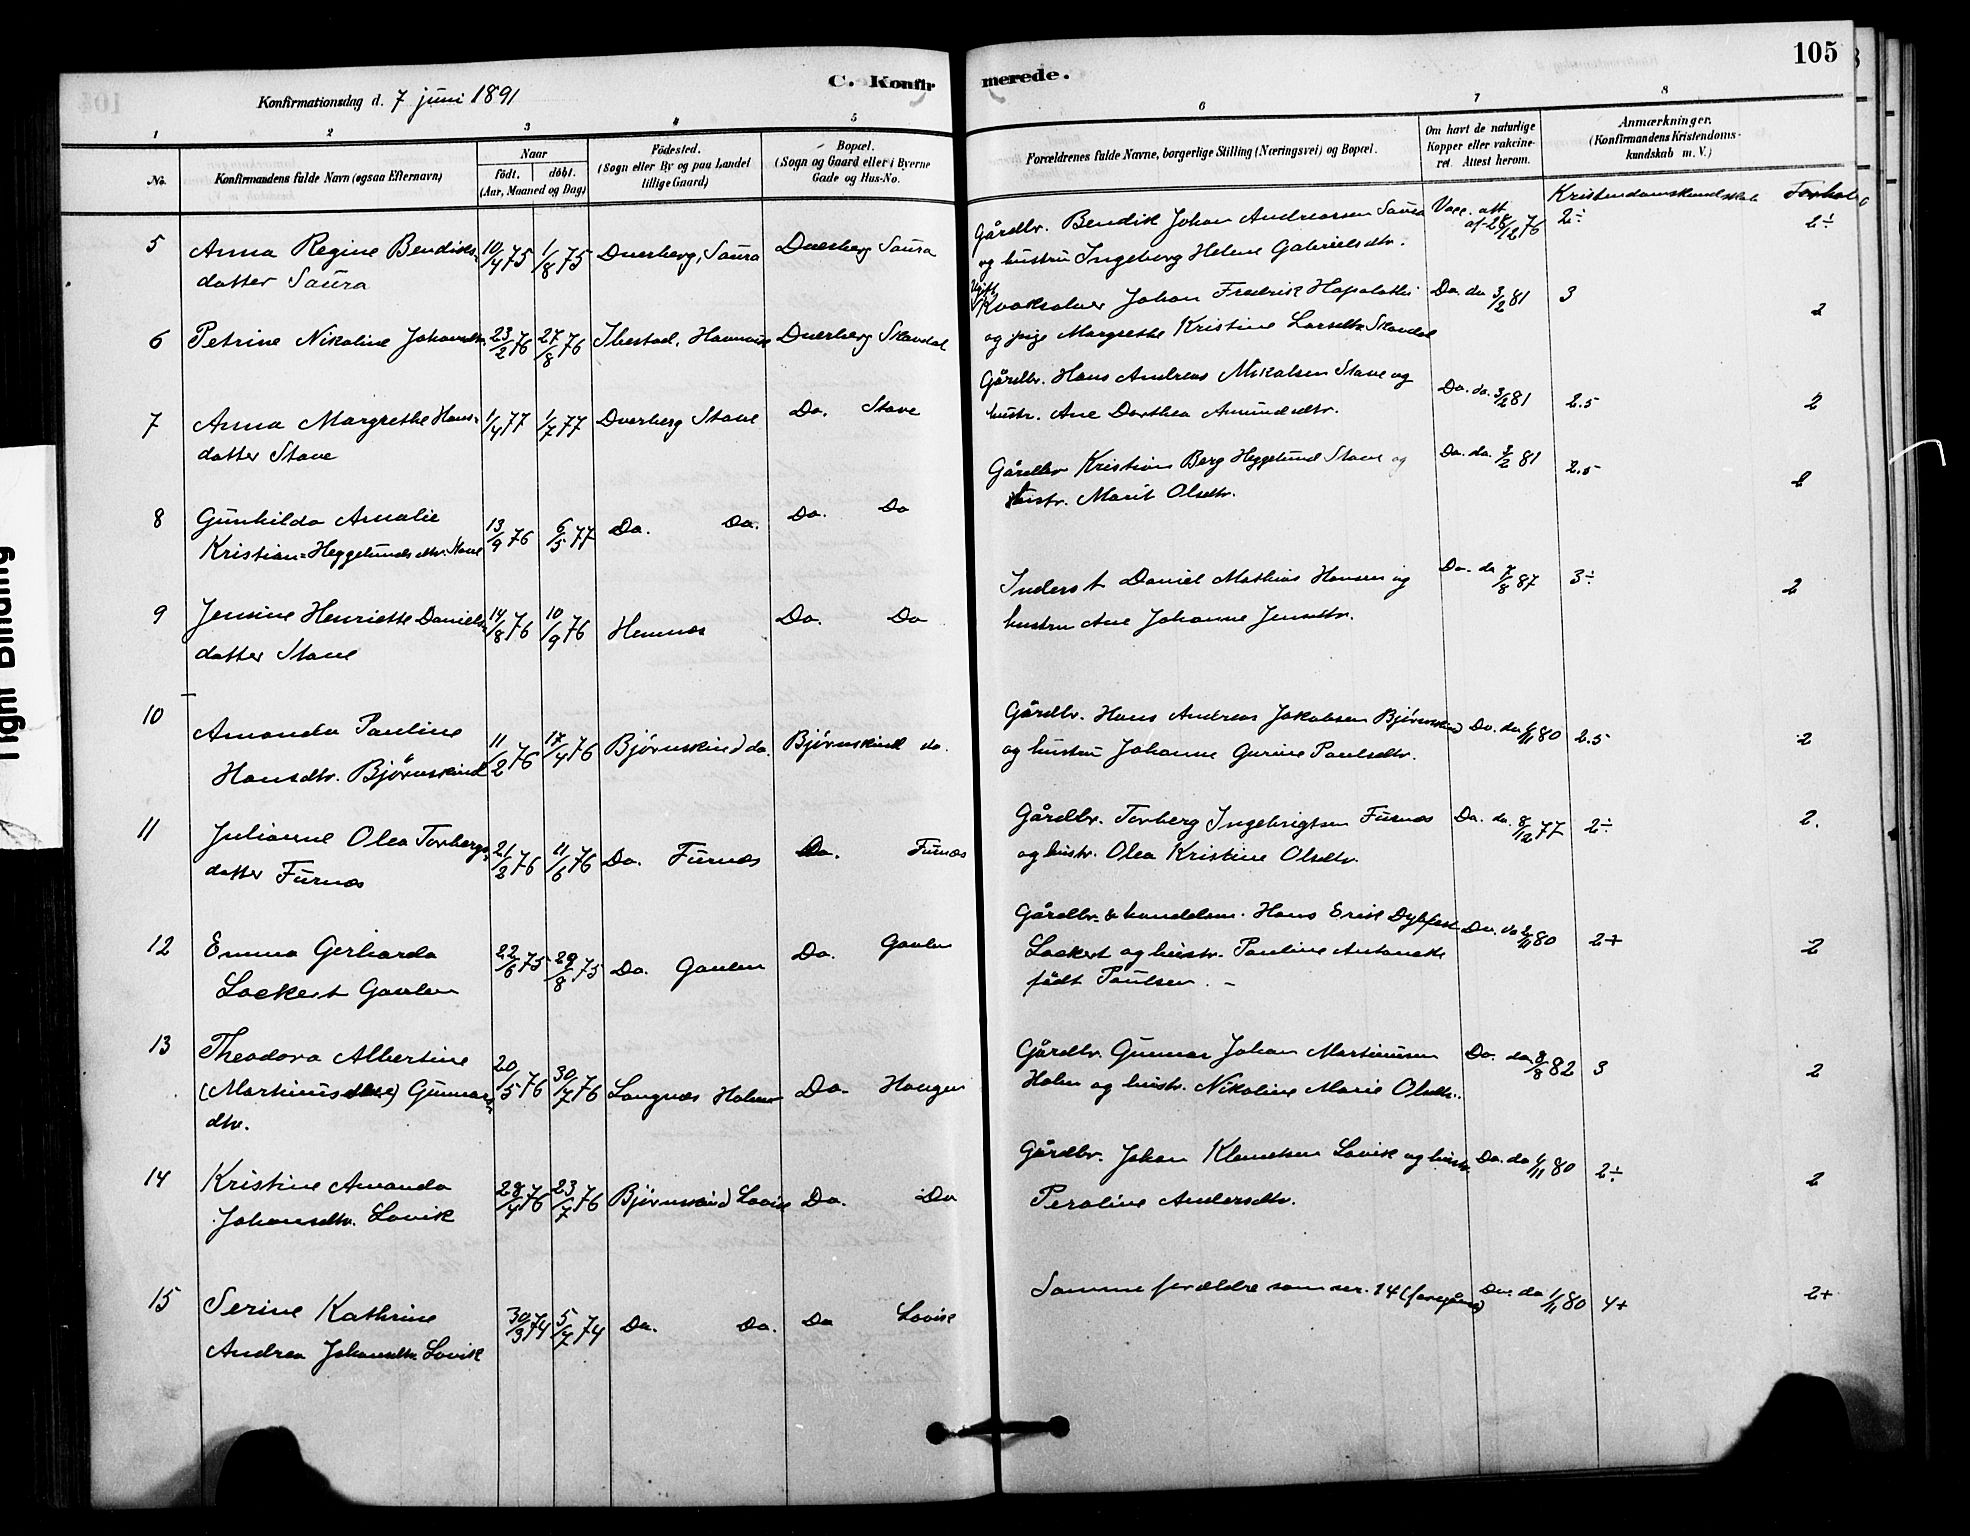 105
C. Konfirmerede.
Konfirmationsdag d. 7 juni 1891
1 2 3 4 5 6 7 8
No.
Konfirmandens fulde Navn (ogsaa Efternavn)
Naar
født. døbt.
(Aar, Maaned og Dag)
Fødested.
(Sogn eller By og paa Landet
tillige Gaard)
Bopæl.
(Sogn og Gaard eller i Byerne
Gade og Hus-No.
Forældrenes fulde Navne, borgerlige Stilling (Næringsvei) og Bopæl.
Om havt de naturlige
Kopper eller vakcine-
ret. Attest herom.
Anmærkninger.
(Konfirmandens Kristendoms-
kundskab m. V.)
Kristendomskundskab Forhold
5 Anna Regine Bendiks- 10/4 75 1/8 75 Dverberg, Saura Dverberg Saura Gårdbr. Bendik Johan Andreassen Saura Vacc. att. af 28/12 76 2÷ 2÷
datter Saura og hustru Ingeborg Helene Gabrielsdtr.
6 Petrine Nikoline Johansdtr 23/2 76 27/8 76 Ibestad, Dverberg Skavdal Johan Fredrik Do. do 3/2 81 3 2
og pige Margrethe Kristine Larsdtr Skavdal
7 Anna Margrethe Hans- 1/4 77 1/7 77 Dverberg Stave Do. Stave Gårdbr. Hans Andreas Nikolaisen Stave og Do. do. 3/2 81 2.5 2
datter Stave hustr. Ane Dorthea Amundsdtr.
8 Gunhilda Amalie 13/9 76 6/5 77 Do. Do. Do. Do Gårdbr Kristian Berg Heggelund Stave og Do. do. 3/2 81 2.5 2
Kristian-Heggelundsdtr. Stave hustr. Marit Olsdtr.
9 Jensine Henriette Daniels- 14/8 76 10/9 76 Hemnæs Do. Do Inderst Daniel Mathias Hansen og Do. do 7/8 87 3÷ 2
datter Stave hustru Ane Johanne Jensdtr.
10 Amanda Pauline 11/2 76 17/4 76 Bjørnskind do. Bjørnskind do. Gårdbr. Hans Andreas Jakobsen Bjørnskind Do. do 1/11 80 2.5 2
Hansdtr. Bjørnskind og hustru Johanne Gurine Paulsdtr.
11 Julianne Olea Torbergs- 21/2 76 11/6 76 Do. Furnæs Do. Furnæs Gårdbr. Torberg Ingebrigtsen Furnæs Do. do. 8/12 77 2÷ 2.
datter Furnæs og hustr. Olea Kristine Olsdtr.
12 Emma Gerharda 22/6 75 29/8 75 Do. Gavlen Do. Gavlen Gårdbr. & handelsm. Hans Erik Dybfest Do. do 80 2+ 2
Lockert Gavlen Lockert og hustr. Pauline Antonette
født Paulsen. –
13 Theodora Albertine 20/5 76 30/7 76 Langnæs Holm Do. Haugen Gårdbr. Gunnar Johan Martinusen Do. do 8/8 82 3 2
(Martinusdtr) Gunnars- Holm og hustr. Nikoline Marie Olsdtr.
dtr.
14 Kristine Amanda 28/4 76 23/7 76 Bjørnskind Lovik Do. Do Gårdbr. Johan Klemetsen Lovik og hustr. Do. do 1/11 80 2÷ 2
Johansdtr. Lovik Peroline Andersdtr.
15 Serine Kathrine 30/3 74 5/7 74 Do. Do. Do Lovik Samme forældre som nr. 14 (foregående) Do. do 1/11 80 4+ 2+
Andrea Johansdtr Lovik
Tight Binding